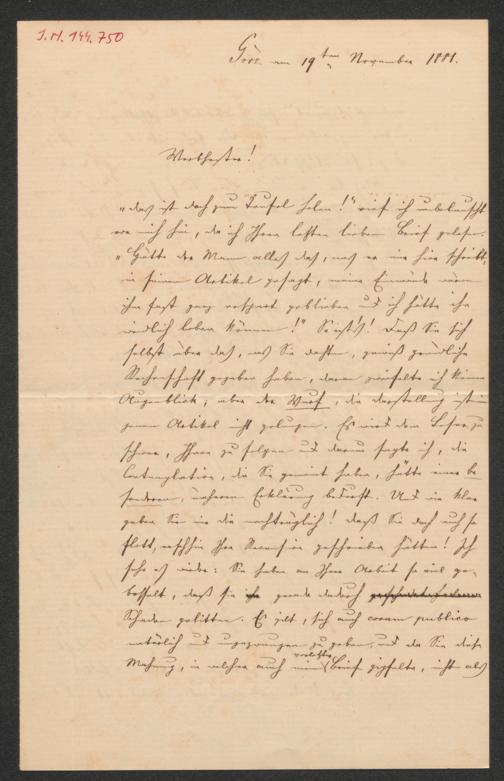 I.N. 144.750
Görz am 19ten November 1881.
Werthester!
„das ist doch zum Teufel holen!" rief ich unbelauscht
vor mich hin, da ich Ihren letzten lieben Brief gelesen.
„Hätte der Mann alles das, was er mir hier schreibt,
in seinem Artikel gesagt, meine Einwände wären
ihm fast ganz erspart geblieben und ich hätte ihn
endlich loben können!" So ist's! Daß Sie sich
selbst über das, was Sie dachten, gewiß gründliche
Rechenschaft gegeben haben, daran zweifelte ich keinen
Augenblick, aber der Wurf, die Darstellung ist in
jenem Artikel nicht gelungen. Es wird dem Leser zu
schwer, Ihnen zu folgen und darum sagte ich, die
Contemplation, die Sie gemeint haben, hätte einer be
sonderen, näheren Erklärung bedurft. Und wie klar
geben Sie mir die nachträglich! Daß Sie doch auch so
flott, Ihre Recension geschrieben hätten! Ich
sehe es wieder: Sie haben an Ihrer Arbeit so viel ge-
bosselt, daß sie gerade dadurch
Schaden gelitten. Es gilt, sich auch coram publico
natürlich und ungezwungen zu geben, und da Sie diese
Mahnung, in welcher auch mein vorletzter Brief gipfelte, nicht als